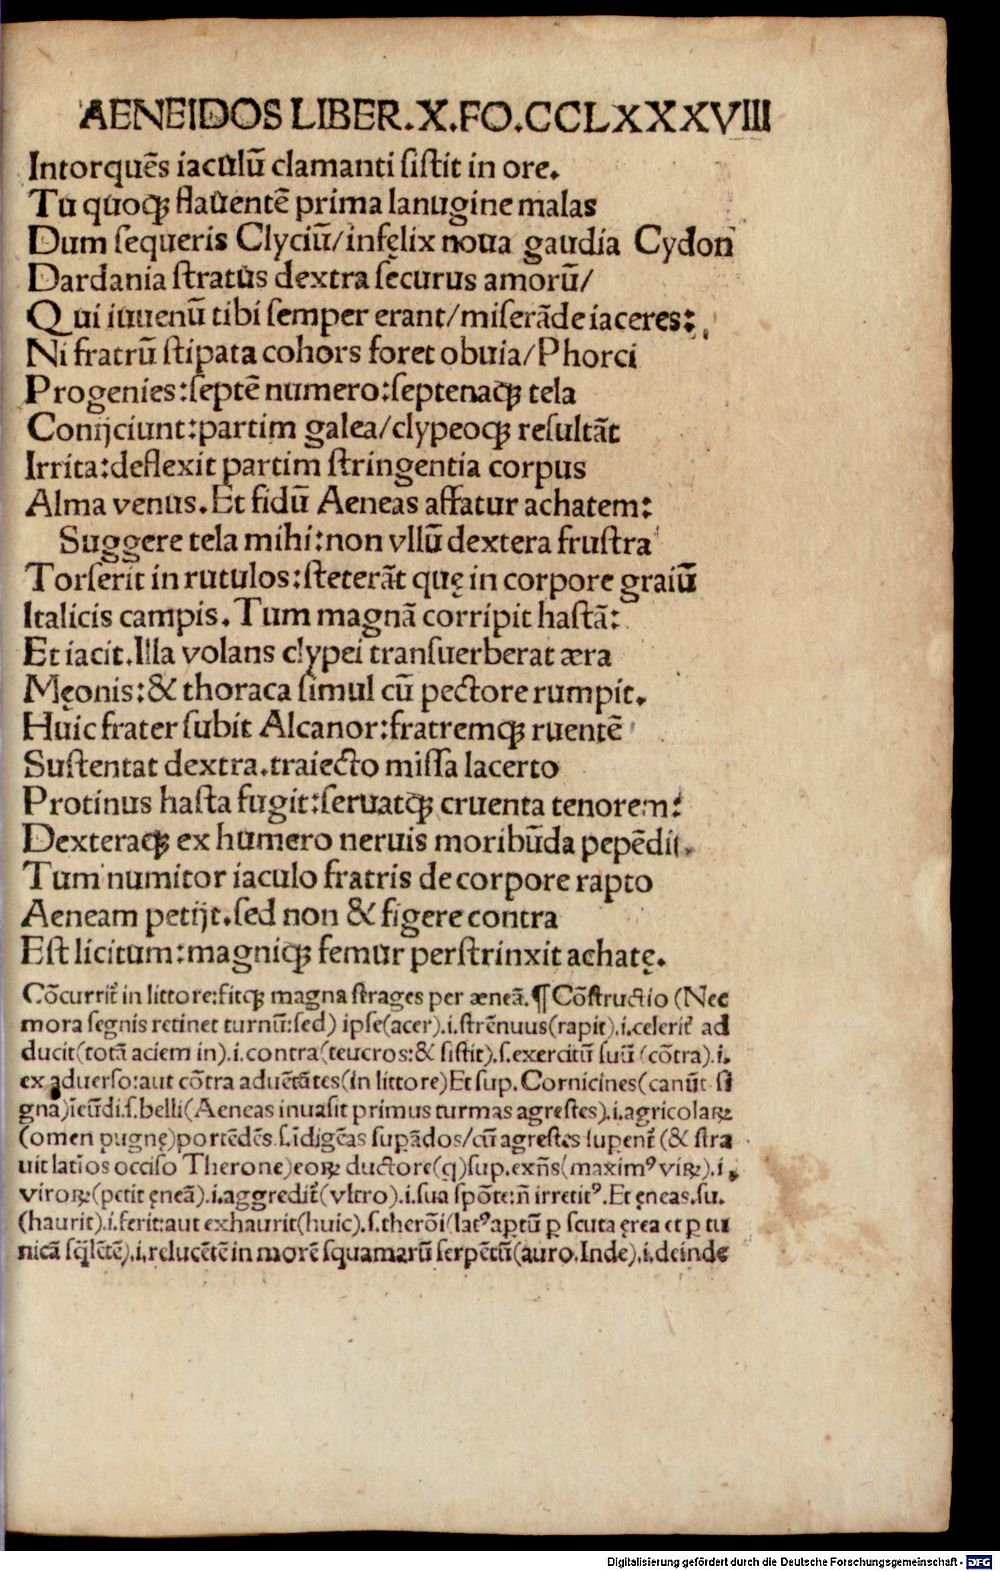 AENEIDOS LIBER.X.FO.CCLXXXVIII
Intorquēs iaculū clamanti ſiſtit in ore.
Tu quoqꝫ flauentē prima lanugine malas
Dum ſequeris Clyciū/infęlix noua gaudia Cydon
Dardania ſtratus dextra ſecurus amorū/
Qui iuuenū tibi ſemper erant/miſerāde iaceres:
Ni fratrū ſtipata cohors foret obuia/Phorci
Progenies:ſeptē numero:ſeptenaqꝫ tela
Conijciunt:partim galea/clypeoqꝫ reſultāt
Irrita:deflexit partim ſtringentia corpus
Alma venus.Et fidū Aeneas affatur achatem:
Suggere tela mihi:non vllū dextera fruſtra
Torſerit in rutulos:ſteterāt quę in corpore graiū
Italicis campis. Tum magnā corripit haſtā:
Et iacit.Illa volans clypei tranſuerberat æra
Męonis:& thoraca ſimul cū pectore rumpit.
Huic frater ſubit Alcanor:fratremqꝫ ruentē
Suſtentat dextra.traiecto miſſa lacerto
Protinus haſta fugit:ſeruatqꝫ cruenta tenorem:
Dexteraqꝫ ex humero neruis moribūda pepēdit.
Tum numitor iaculo fratris de corpore rapto
Aeneam petijt.ſed non & figere contra
Eſt licitum:magniqꝫ femur perſtrinxit achatę.
Cōcurrit᷑ in littore:fitqꝫ magna ſtrages per æneā.¶Cōſtructio (Nec
mora ſegnis retinet turnū:ſed) ipſe(acer).i.ſtrēnuus(rapit).i.celerit᷑ ad
ducit(totā aciem in).i.contra(teucros:& ſiſtit).ſ.exercitū ſuū (cōtra).i.
ex aduerſo:aut cōtra aduētātes(in littore)Et ſup. Cornicines(canūt ſi
gna)īcūdi.ſ.belli(Aeneas inuaſit primus turmas agreſtes).i.agricolaꝝ
(omen pugnę)portēdēs.ſ.īdigēas ſupādos/cū agreſtes ſuꝑent᷑ (& ſtra
uit latīos occiſo Therone)eoꝝ ductore(q)ſup.exn̄s(maximꝰ viꝝ).i.
viroꝝ(petit ęneā).i.aggredit᷑(vltro).i.ſua ſpōte:n̄ irretitꝰ.Et ęneas.ſu.
(haurit).i.ferit:aut exhaurit(huic).ſ.therōi(latꝰ aptū ꝑ ſcuta ęrea et ꝑ tu
nicā ſq̄lētē).i.relucētē in morē ſquamarū ſerpētū(auro.Inde).i.deinde
Digitalisierung gefördert durch die Deutsche Forschungsgemeinschaft - DFG